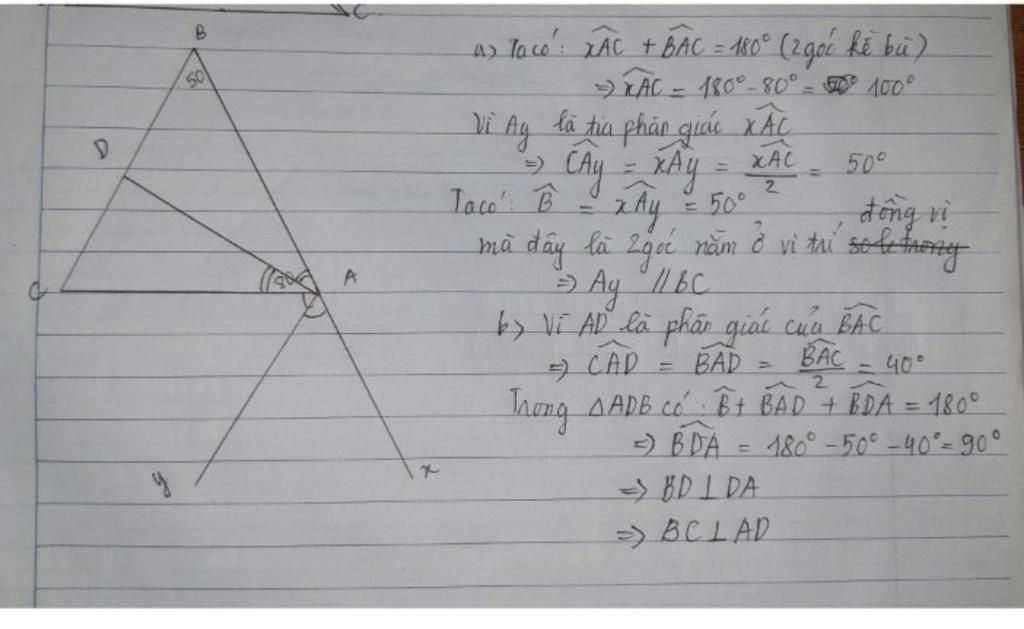 C
B
50
D
C
80
A
y
x
a) Ta có: xAC^ + BAC^ = 180° (2 góc kề bù)
=> xAC^ = 180° - 80° = 100°
Vì Ay là tia phân giác xAC^
=> CAy^ = xAy^ = xAC^/2 = 50°
Ta có: B^ = xAy^ = 50°
đồng vị
mà đây là 2 góc nằm ở vị trí so le trong
=> Ay // BC
b) Vì AD là phân giác của BAC^
=> CAD^ = BAD^ = BAC^/2 = 40°
Trong △ADB có: B^ + BAD^ + BDA^ = 180°
=> BDA^ = 180° - 50° - 40° = 90°
=> BD ⊥ DA
=> BC ⊥ AD